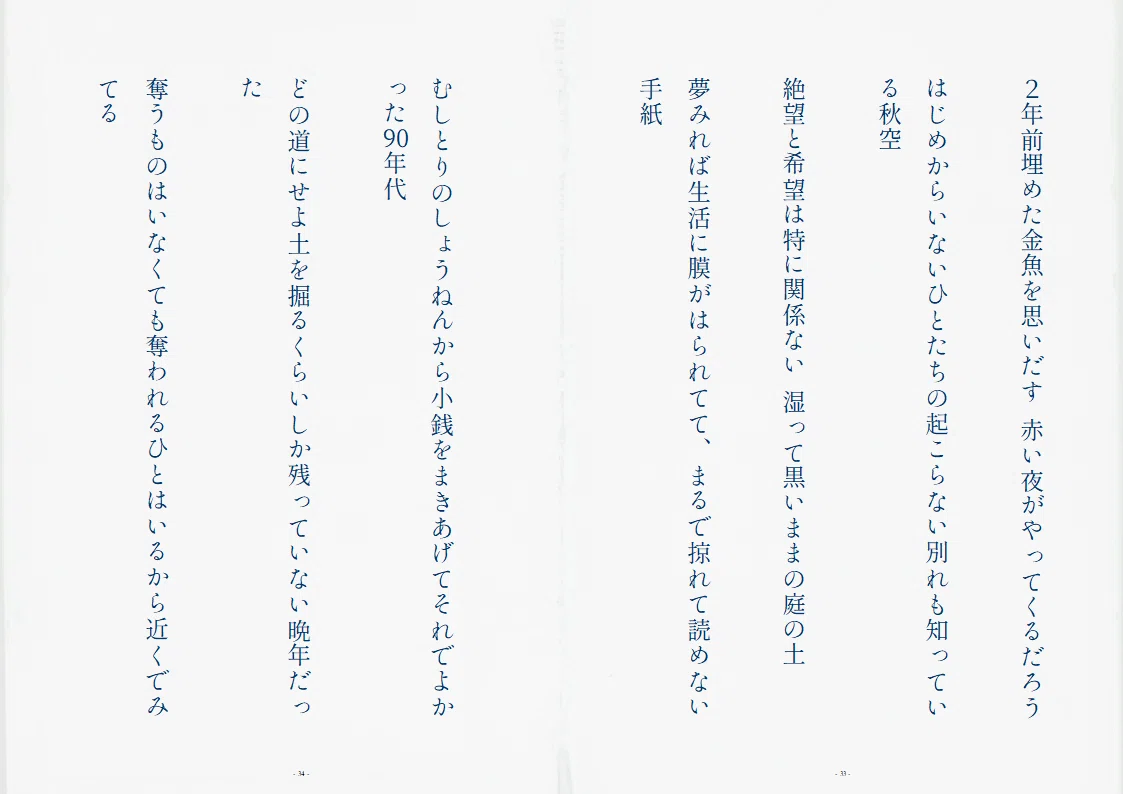 ２年前埋めた金魚を思いだす　赤い夜がやってくるだろう
はじめからいないひとたちの起こらない別れも知ってい
る秋空
絶望と希望は特に関係ない　湿って黒いままの庭の土
夢みれば生活に膜がはられてて、まるで掠れて読めない
手紙
- 33 -
むしとりのしょうねんから小銭をまきあげてそれでよか
った90年代
どの道にせよ土を掘るくらいしか残っていない晩年だっ
た
奪うものはいなくても奪われるひとはいるから近くでみ
てる
- 34 -